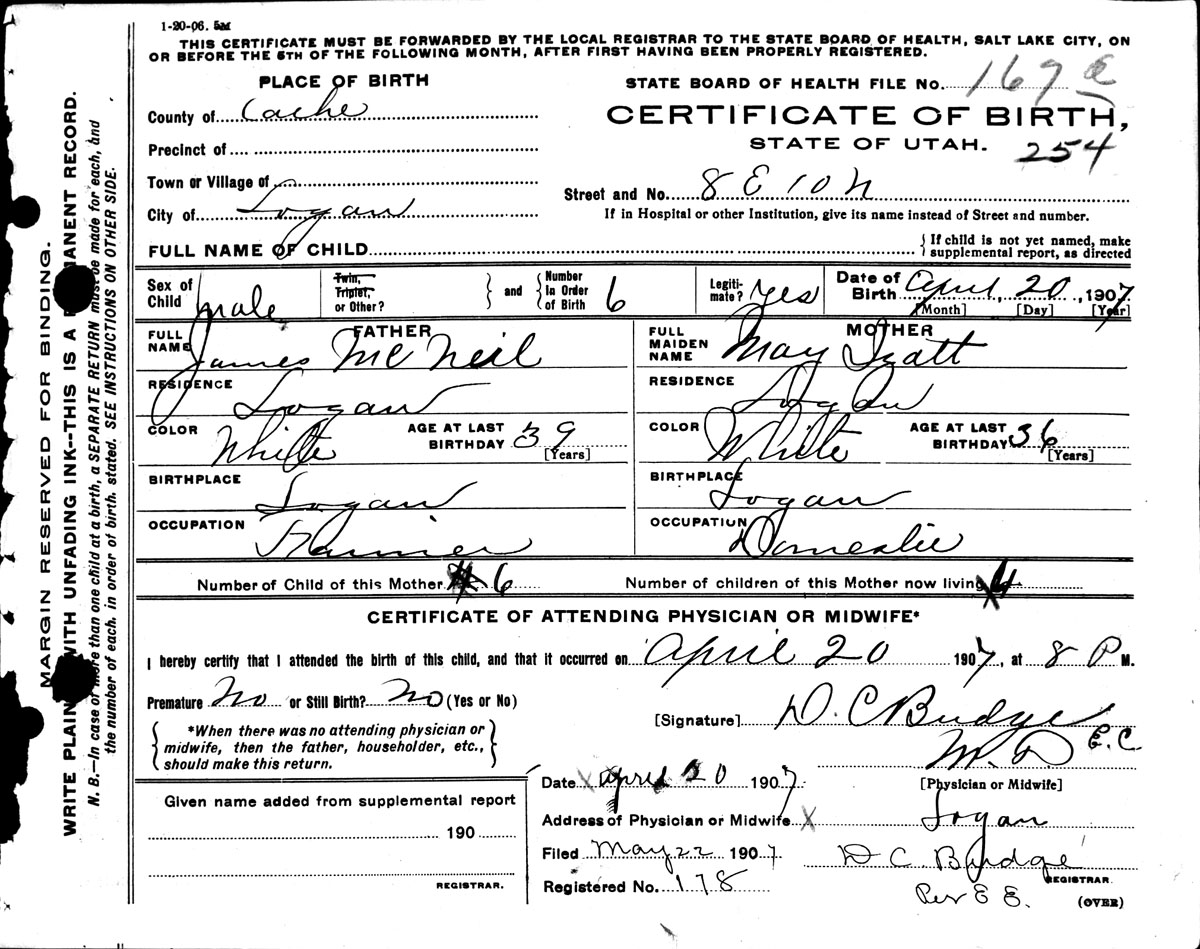 1-20-06. 5M
THIS CERTIFICATE MUST BE FORWARDED BY THE LOCAL REGISTRAR TO THE STATE BOARD OF HEALTH, SALT LAKE CITY, ON
OR BEFORE THE 5TH OF THE FOLLOWING MONTH, AFTER FIRST HAVING BEEN PROPERLY REGISTERED.
PLACE OF BIRTH
County of Cache
Precinct of
Town or Village of
City of Logan
STATE BOARD OF HEALTH FILE No. 169
CERTIFICATE OF BIRTH,
STATE OF UTAH.
254
Street and No. 8 E 10 N
If in Hospital or other Institution, give its name instead of Street and number.
FULL NAME OF CHILD
If child is not yet named, make
supplemental report, as directed
Sex of Child male
Twin, Triplet, or Other?
and
Number In Order of Birth 6
Legiti-mate? Yes
Date of Birth April 20, 1907
[Month] [Day] [Year]
FATHER
FULL NAME James McNeil
RESIDENCE Logan
COLOR White
AGE AT LAST BIRTHDAY 39
[Years]
BIRTHPLACE Logan
OCCUPATION Farmer
MOTHER
FULL MAIDEN NAME May Izatt
RESIDENCE Logan
COLOR White
AGE AT LAST BIRTHDAY 36
[Years]
BIRTHPLACE Logan
OCCUPATION Domestic
Number of Child of this Mother 6
Number of children of this Mother now living 4
CERTIFICATE OF ATTENDING PHYSICIAN OR MIDWIFE*
I hereby certify that I attended the birth of this child, and that it occurred on April 20 1907, at 8 P M.
Premature No or Still Birth? No (Yes or No)
*When there was no attending physician or
midwife, then the father, householder, etc.,
should make this return.
[Signature] D. C Budge
M. D E. C
[Physician or Midwife]
Given name added from supplemental report
190
REGISTRAR.
Date April 20 1907
Address of Physician or Midwife X Logan
Filed May 22 1907
D C Budge
REGISTRAR
Registered No. 178
Per E E.
(OVER)
MARGIN RESERVED FOR BINDING.
WRITE PLAINLY WITH UNFADING INK--THIS IS A PERMANENT RECORD.
N. B.—In case of more than one child at a birth, a SEPARATE RETURN must be made for each, and
the number of each, in order of birth, stated. SEE INSTRUCTIONS ON OTHER SIDE.